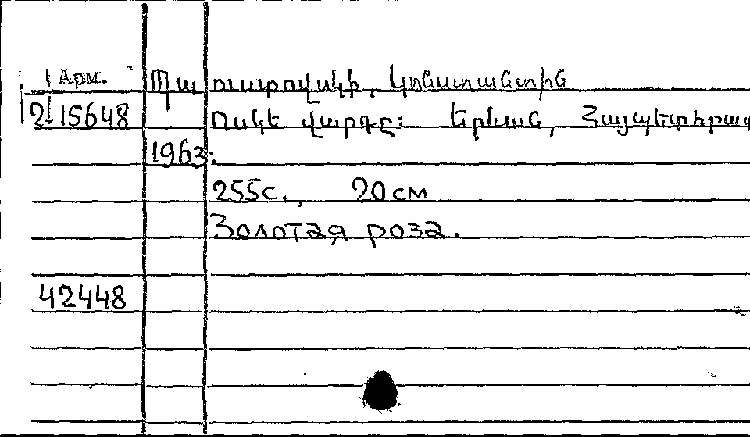 Арм. Պաուստովսկի, Կոնստանտին
2-15648 Ոսկե վարդը: Երևան, Հայպետհրատ
1963.
255с., 20см
Золотая роза.
42448